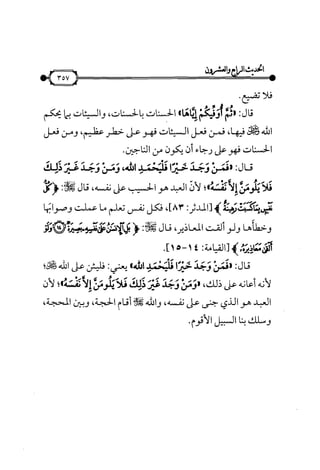 الحديث الرابع والعشرون
٣٥٧
فلا تضيع.
قال: «ثُمَّ أُوَفِّيكُمْ إِيَّاهَا» الحسنات بالحسنات، والسيئات بما يحكم
الله ﷻ فيها، فمن فعل السيئات فهو على خطر عظيم، ومن فعل
الحسنات فهو على رجاء أن يكون من الناجين.
قال: «فَمَنْ وَجَدَ خَيْرًا فَلْيَحْمَدِ الله، وَمَنْ وَجَدَ غَيْرَ ذَلِكَ
فَلَا يَلُومَنَّ إِلَّا نَفْسَهُ»؛ لأن العبد هو الحسيب على نفسه، قال ﷻ: ﴿كُلُّ
نَفْسٍ بِمَا كَسَبَتْ رَهِينَةٌ﴾ [المدثر: ٣٨]، فكل نفس تعلم ما عملت وصوابها
وخطأها ولو ألقت المعاذير، قال ﷻ: ﴿بَلِ الْإِنْسَانُ عَلَى نَفْسِهِ بَصِيرَةٌ ١٤ وَلَوْ
أَلْقَى مَعَاذِيرَهُ﴾ [القيامة: ١٤-١٥].
قال: «فَمَنْ وَجَدَ خَيْرًا فَلْيَحْمَدِ الله» يعني: فليثن على الله ﷻ؛
لأنه أعانه على ذلك، «وَمَنْ وَجَدَ غَيْرَ ذَلِكَ فَلَا يَلُومَنَّ إِلَّا نَفْسَهُ»؛ لأن
العبد هو الذي جنى على نفسه، والله ﷻ أقام الحجة، وبين المحجة،
وسلك بنا السبيل الأقوم.